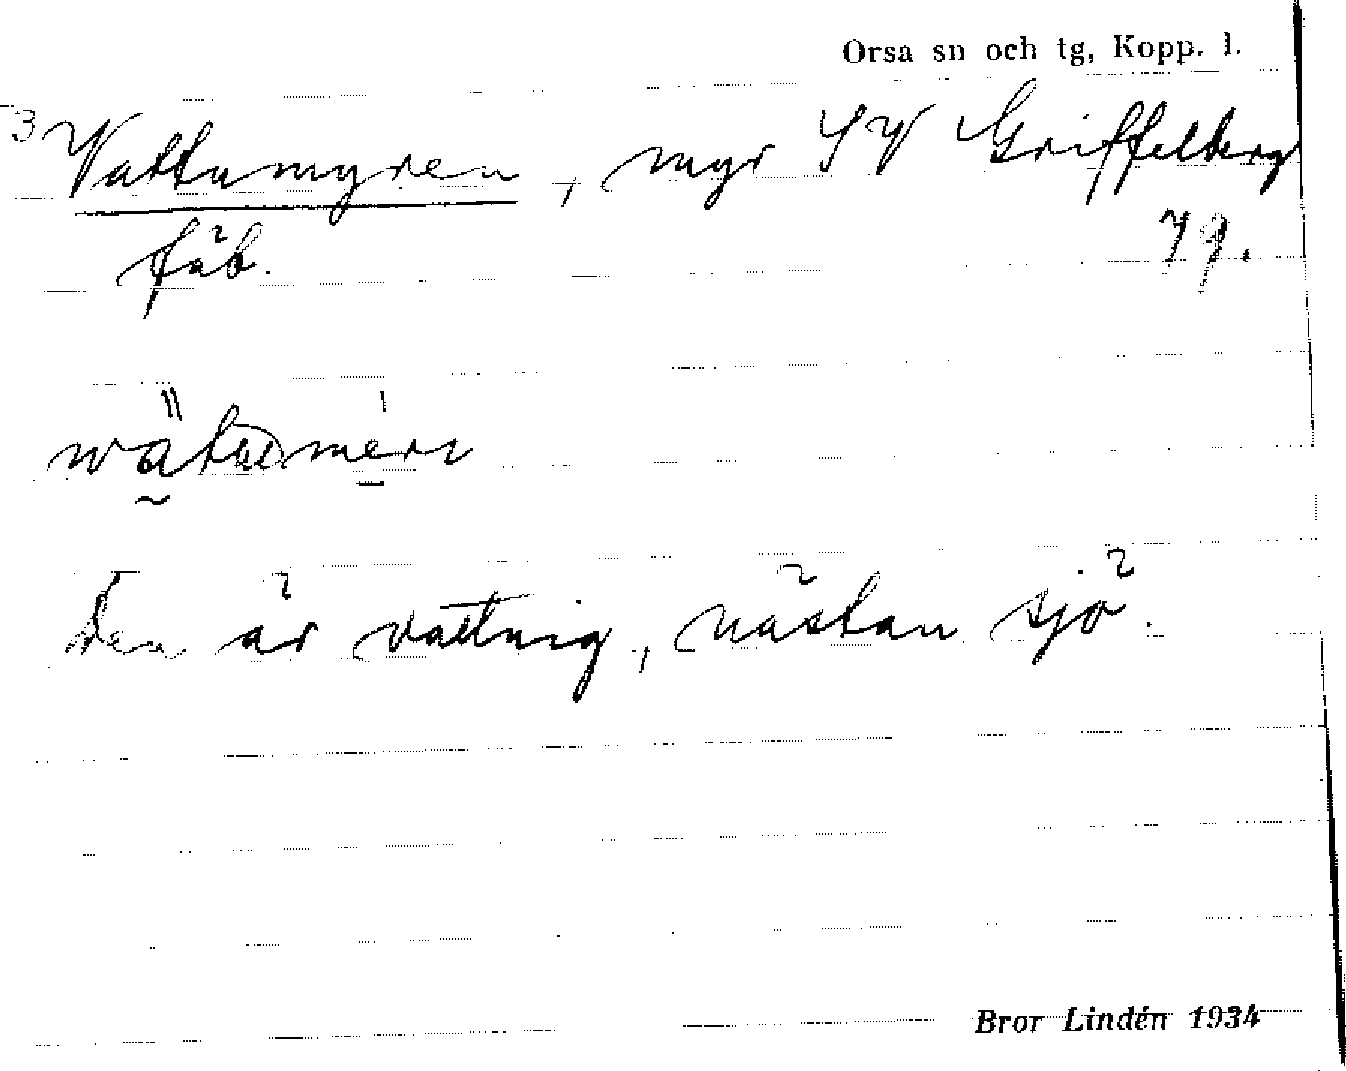 Orsa sn och tg, Kopp. l.
3 Vattumyren, myr SV Griffelberg
fäb. 79.
Den är vattnig, nästan sjö.
Bror Lindén 1934